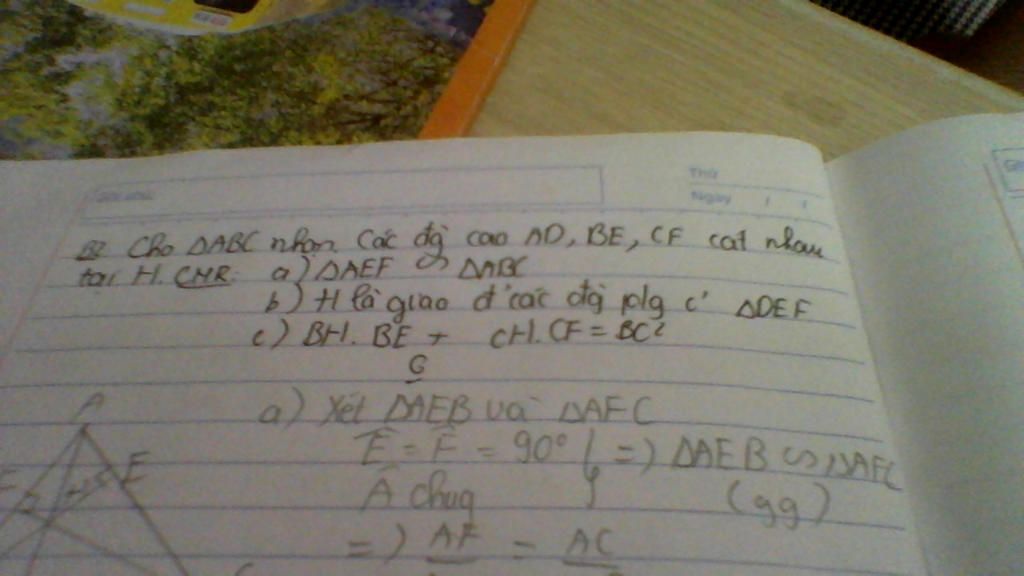 Thứ
Ngày / /
B2 Cho ΔABC nhọn. Các đg cao AD, BE, CF cat nhau
tại H. CMR: a) ΔAEF ∽ ΔABC
b) H là giao đ' các đg plg c' ΔDEF
c) BH. BE + CH. CF = BC²
G
a) Xét ΔAEB và ΔAFC
Ê = F̂ = 90° } => ΔAEB ∽ ΔAFC
 chug (gg)
=> AF = AC
A
F E